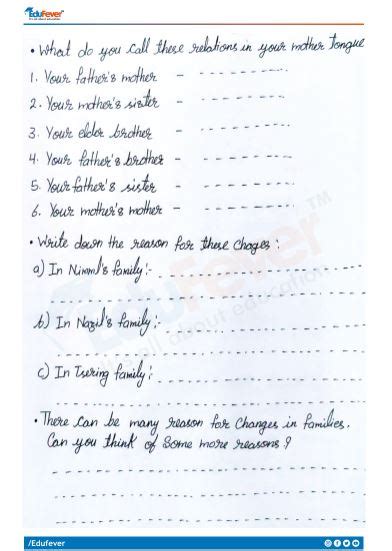 EduFever
It's all about education
• What do you call these relations in your mother tongue
1. Your father's mother - - - - - - - - - -
2. Your mother's sister - - - - - - - - - -
3. Your elder brother - - - - - - - - - -
4. Your father's brother - - - - - - - - - -
5. Your father's sister - - - - - - - - - -
6. Your mother's mother - - - - - - - - - -
• Write down the reason for these Chages :
a) In Nimmi's family:-
b) In Nazli's family:-
c) In Tsering family:-
• There can be many reason for changes in families.
Can you think of some more reasons?
EduFever TM
all about education
/Edufever